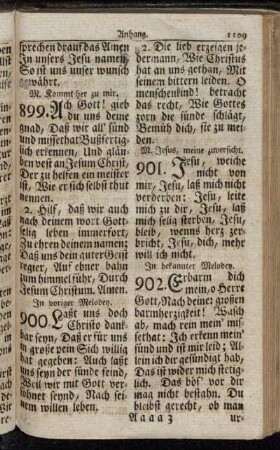 Anhang.
1109
sprechen drauf das Amen
In unsers Jesu namen,
So ist uns unser wunsch
gewährt.
M. Kommt her zu mir.
899. Ach Gott! gieb
du uns deine
gnad, Daß wir all' sünd
und missethat Bußfertig-
lich erkennen, Und glau-
ben vest an Jesum Christ,
Der zu helfen ein meister
ist, Wie er sich selbst thut
nennen.
2. Hilf, daß wir auch
nach deinem wort Gott-
selig leben immerfort,
Zu ehren deinem namen;
Daß uns dein guter Geist
regier, Auf ebner bahn
zum himmel führ, Durch
Jesum Christum. Amen.
In voriger Melodey.
900. Laßt uns doch
Christo dank-
bar seyn, Daß er für uns
in große Pein Sich willig
hat gegeben: Auch laßt
uns seyn der sünde feind,
Weil wir mit Gott ver-
söhnet seynd, Nach sei-
nem willen leben.
2. Die lieb erzeigen je-
dermann, Wie Christus
hat an uns gethan, Mit
seinem bittern leiden. O
menschenkind! betracht
das recht, Wie Gottes
zorn die sünde schlägt,
Bemüh dich, sie zu mei-
den.
M. Jesus, meine zuversicht.
901. Jesu, weiche
nicht von
mir, Jesu, laß mich nicht
verderben: Jesu, leite
mich zu dir, Jesu, laß
mich selig sterben, Jesu,
bleib, wenns herz zer-
bricht, Jesu, dich, mehr
will ich nicht.
In bekannter Melodey.
902. Erbarm dich
mein, o Herre
Gott, Nach deiner großen
barmherzigkeit! Wasch
ab, mach rein mein' mis-
sethat: Ich erkenn mein'
sünd und ist mir leid; Al-
lein ich dir gesündigt hab,
Das ist wider mich stetig-
lich. Das bös' vor dir
mag nicht bestahn. Du
bleibst gerecht, ob man
Aaaa 3
ur-